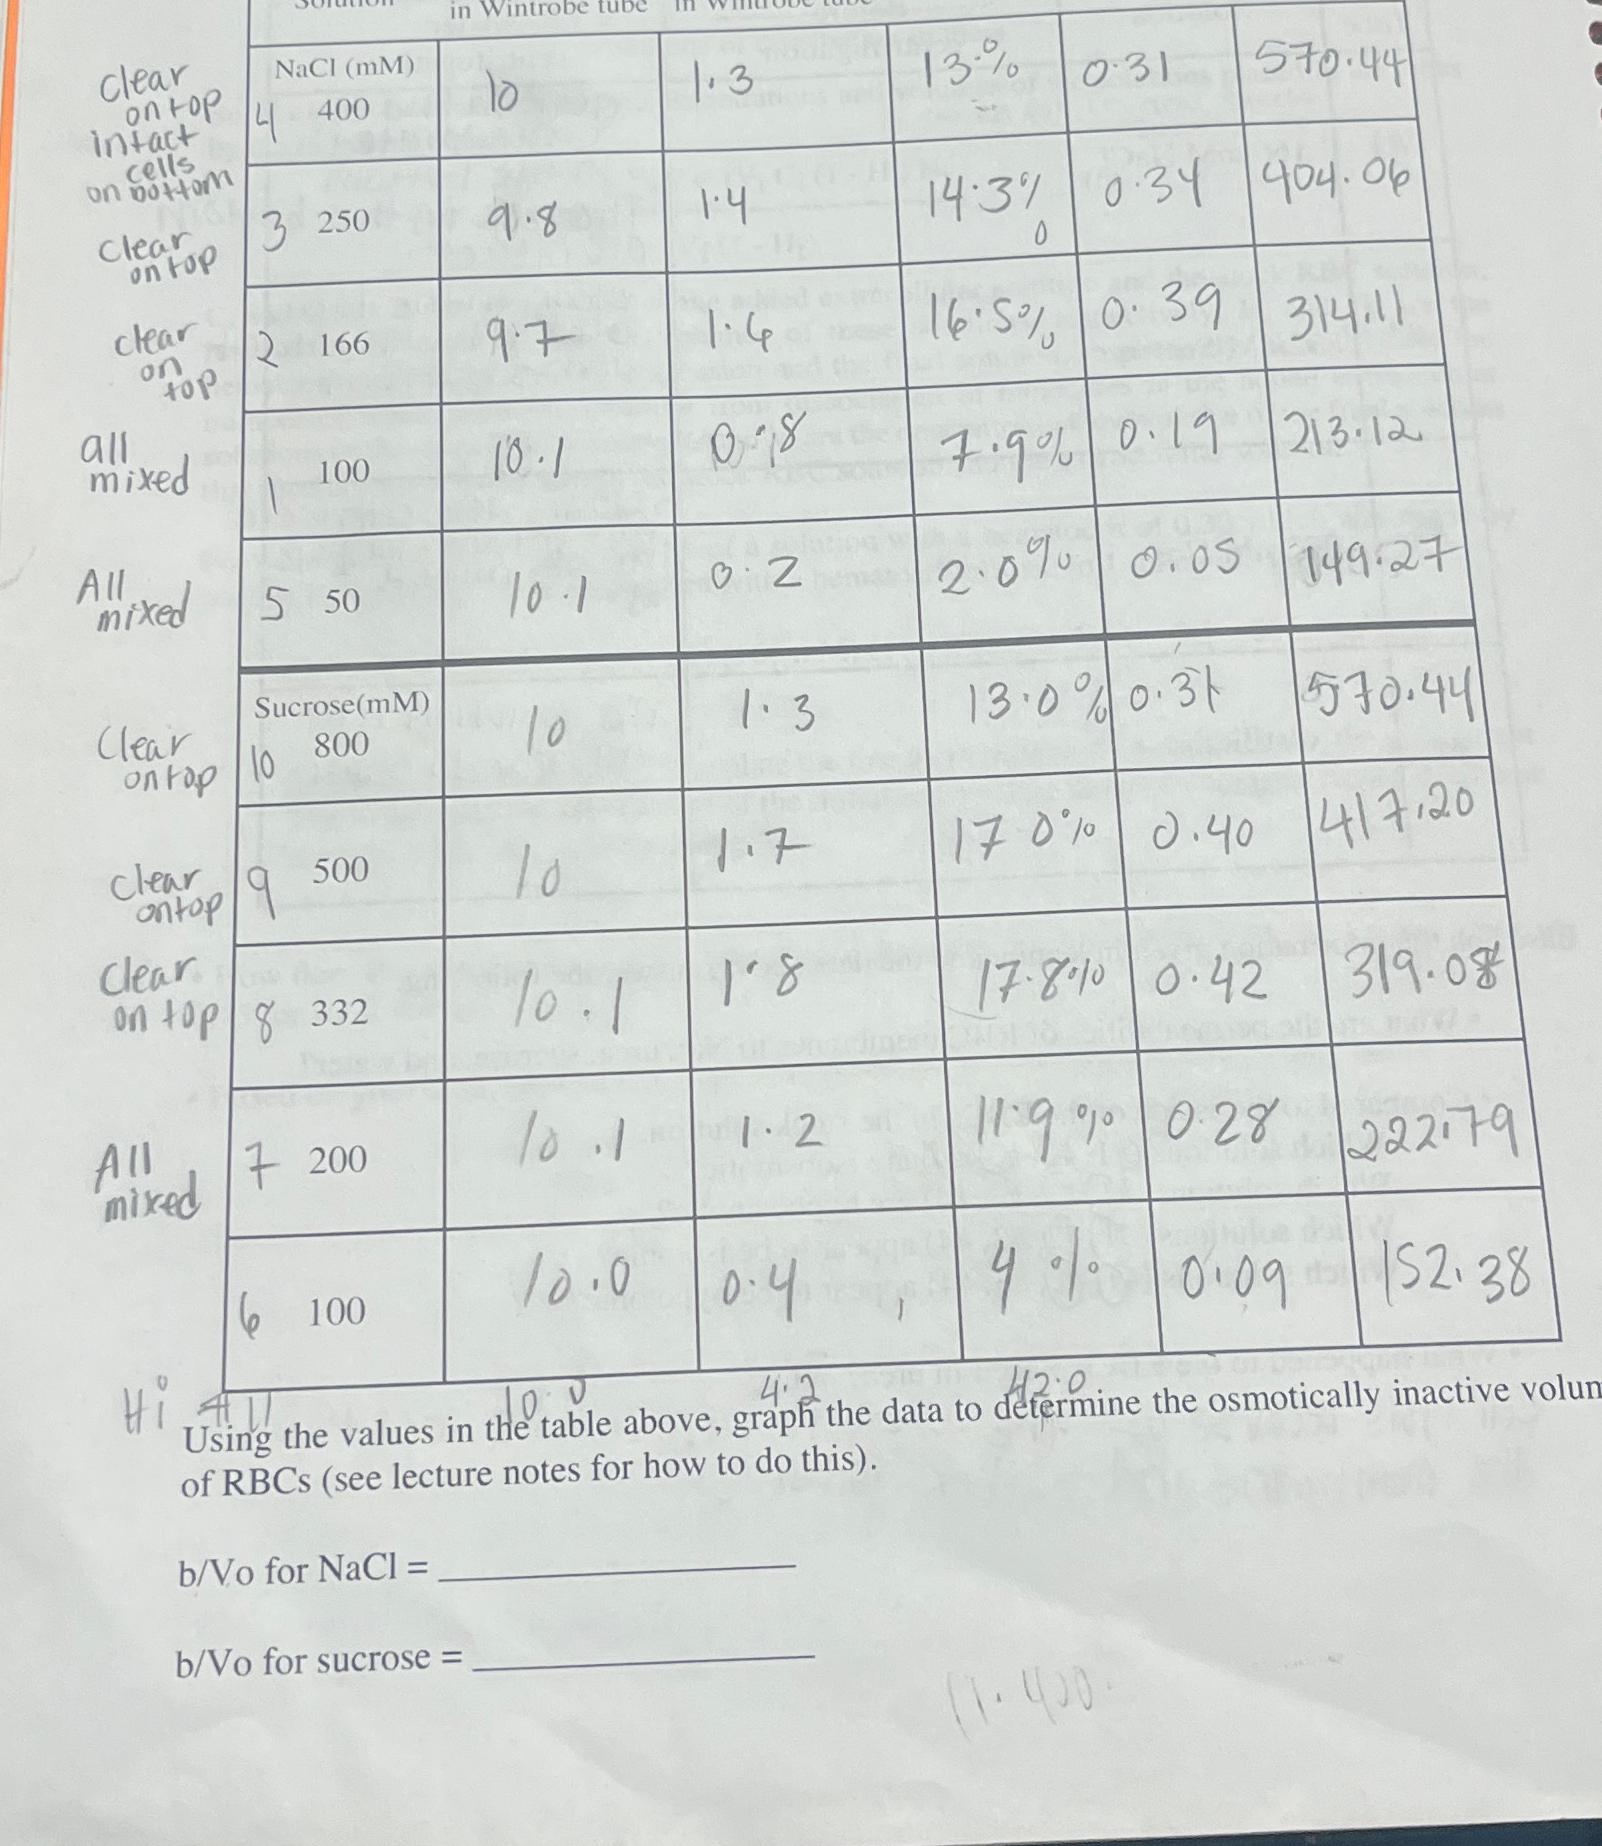 in Wintrobe tube
clear on top intact cells on bottom 4 NaCl (mM) 400 10 1.3 13.% 0.31 570.44
clear on top 3 250 9.8 1.4 14.3% 0.34 404.06
clear on top 2 166 9.7 1.6 16.5% 0.39 314.11
all mixed 1 100 10.1 0.8 7.9% 0.19 213.12
All mixed 5 50 10.1 0.2 2.0% 0.05 149.27
Clear on top 10 Sucrose(mM) 800 10 1.3 13.0% 0.31 570.44
Clear on top 9 500 10 1.7 17 0% 0.40 417.20
Clear on top 8 332 10.1 1.8 17.8% 0.42 319.08
All mixed 7 200 10.1 1.2 11.9% 0.28 222.79
6 100 10.0 0.4 4% 0.09 152.38
Hi #11 10.0 4.2 42.0
Using the values in the table above, graph the data to determine the osmotically inactive volum
of RBCs (see lecture notes for how to do this).
b/Vo for NaCl =
b/Vo for sucrose =